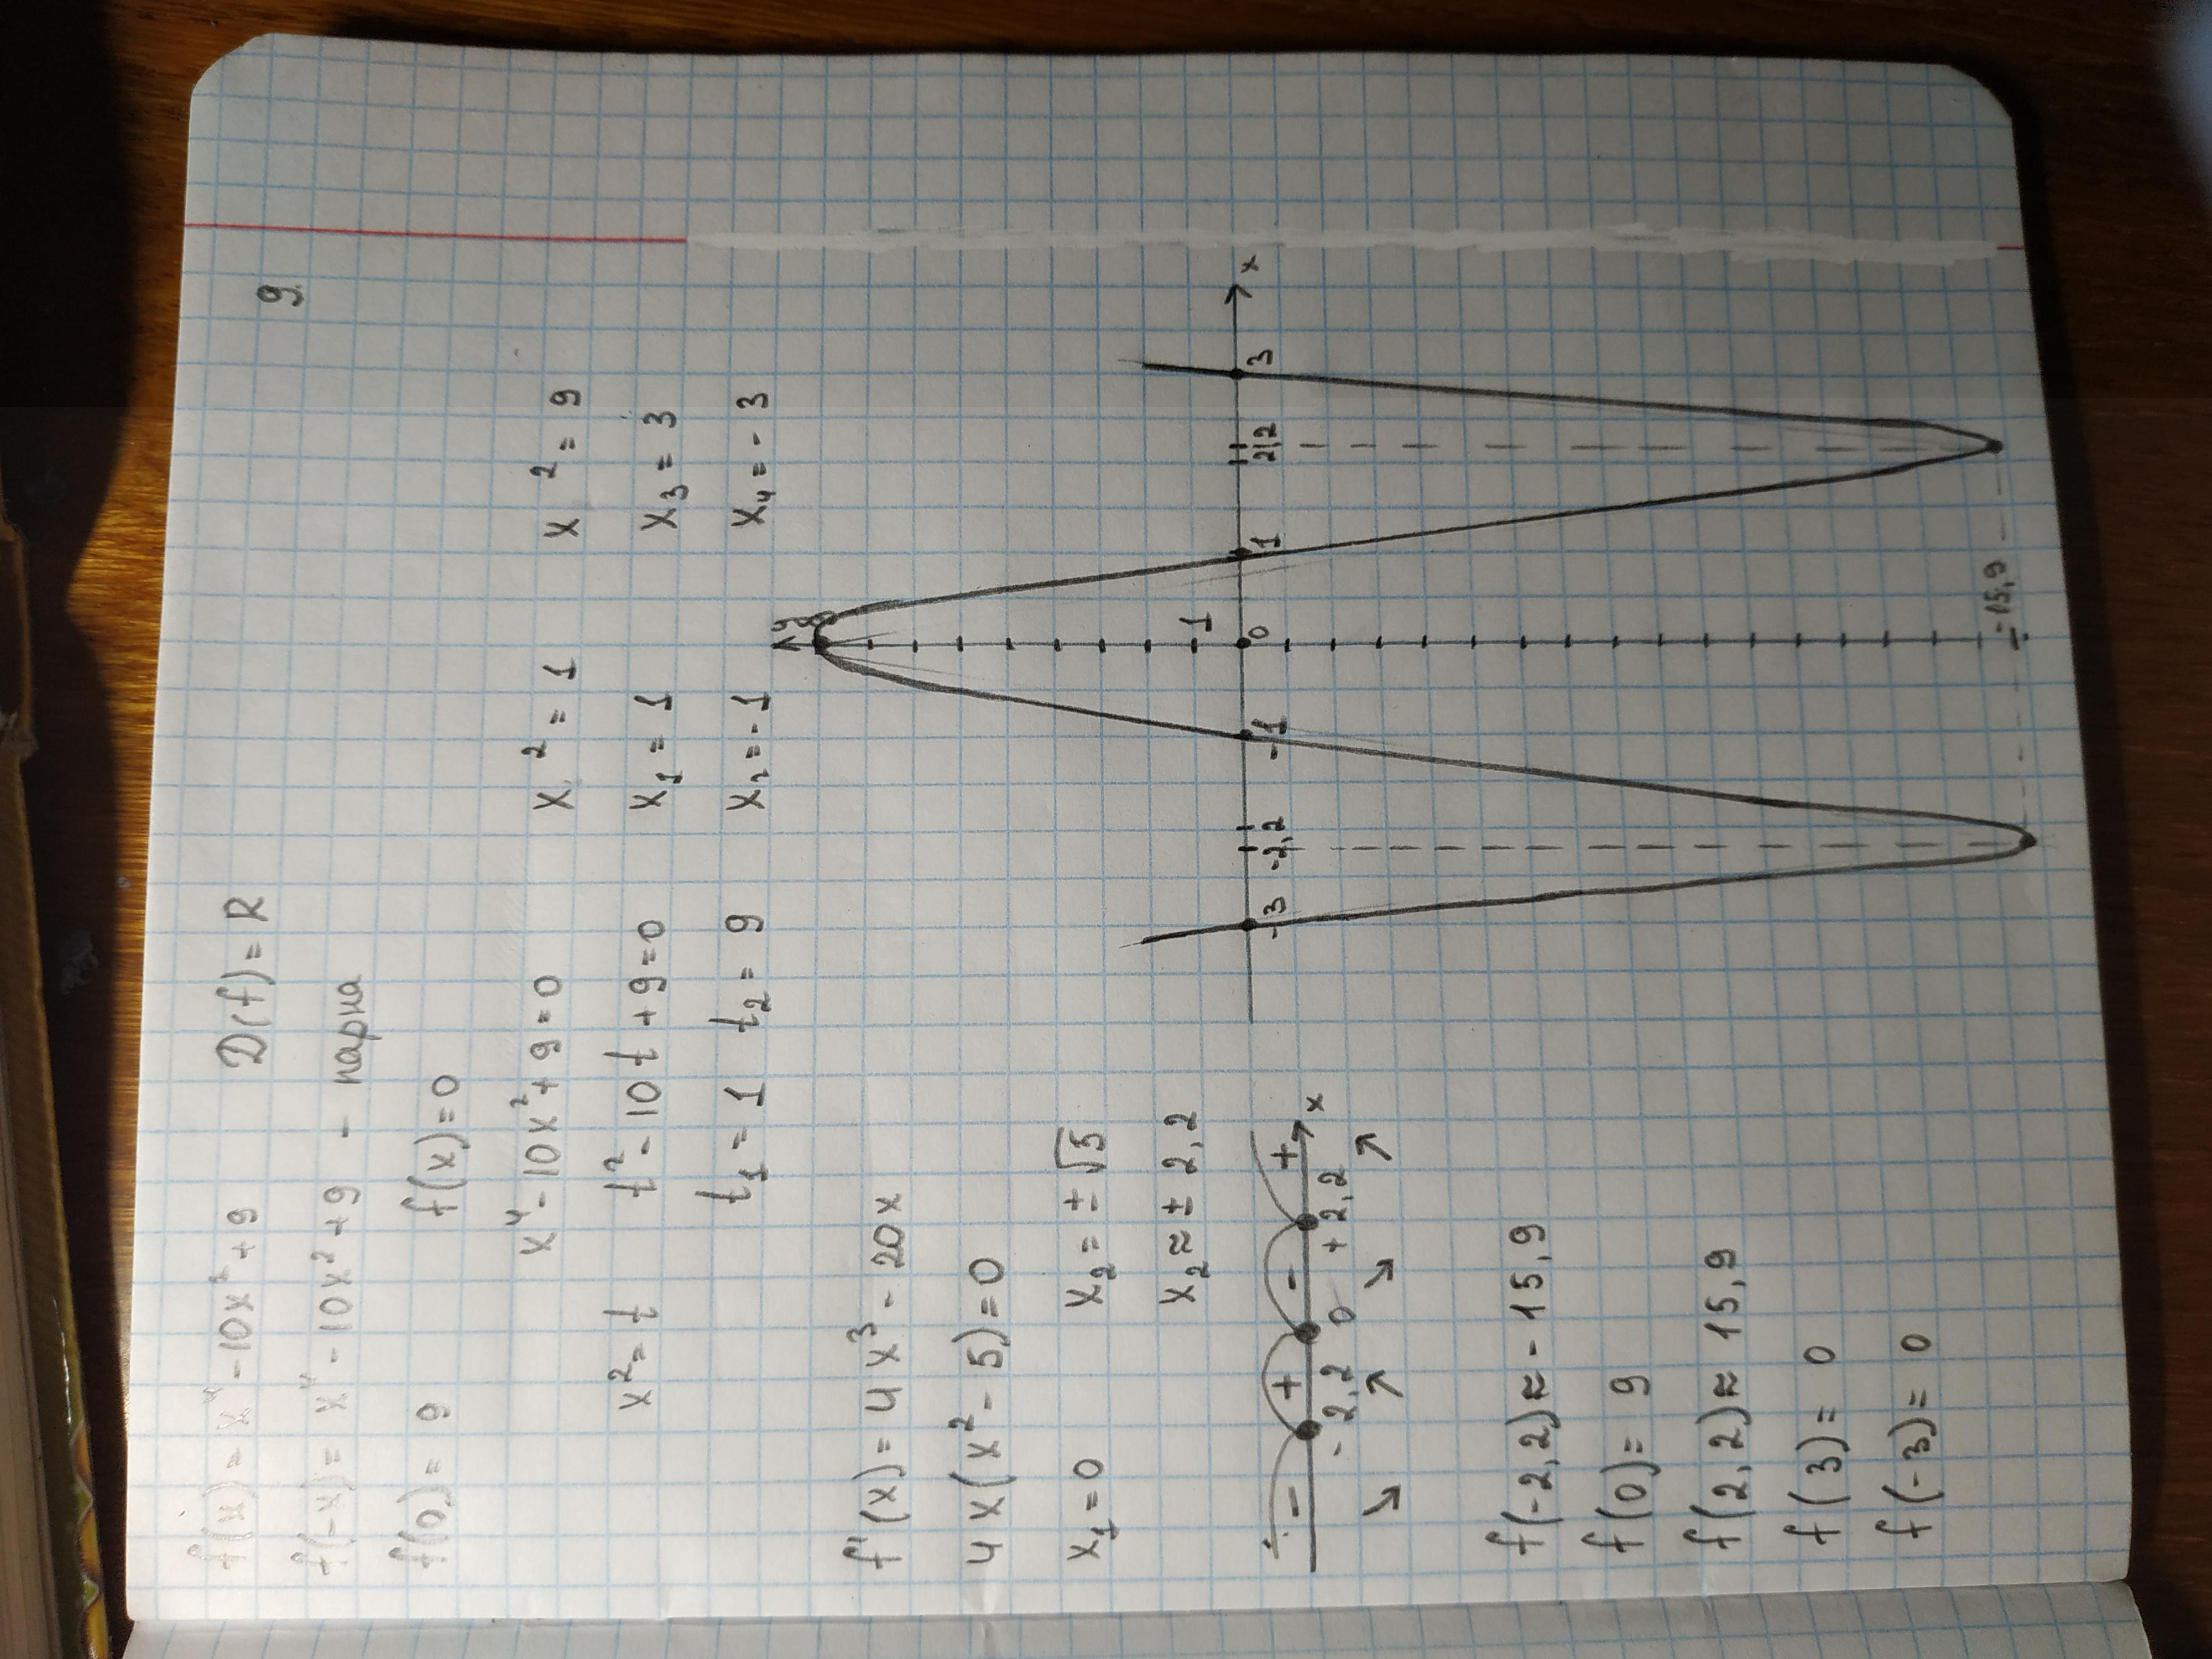 9.
f(x) = x⁴ - 10x² + 9 D(f) = R
f(-x) = x⁴ - 10x² + 9 - парна
f(0) = 9 f(x) = 0
x⁴ - 10x² + 9 = 0 x² = 1 x² = 9
x² = t t² - 10t + 9 = 0 x₁ = 1 x₃ = 3
t₁ = 1 t₂ = 9 x₂ = -1 x₄ = -3
f'(x) = 4x³ - 20x
4x(x² - 5) = 0
x₁ = 0 x₂ = ±√5
x₂ ≈ ± 2,2
- + - +
-2,2 0 +2,2 x
↘ ↗ ↘ ↗
f(-2,2) ≈ -15,9
f(0) = 9
f(2,2) ≈ 15,9
f(3) = 0
f(-3) = 0
y
1
-3 -2,2 -1 0 1 2 2,2 3 x
-15,9